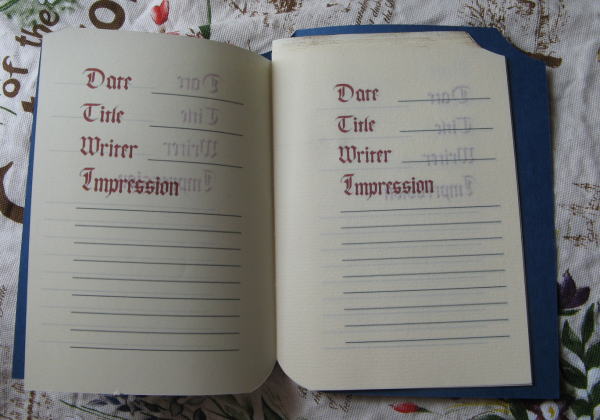 of the
Date
Title
Writer
Impression
Date
Title
Writer
Impression